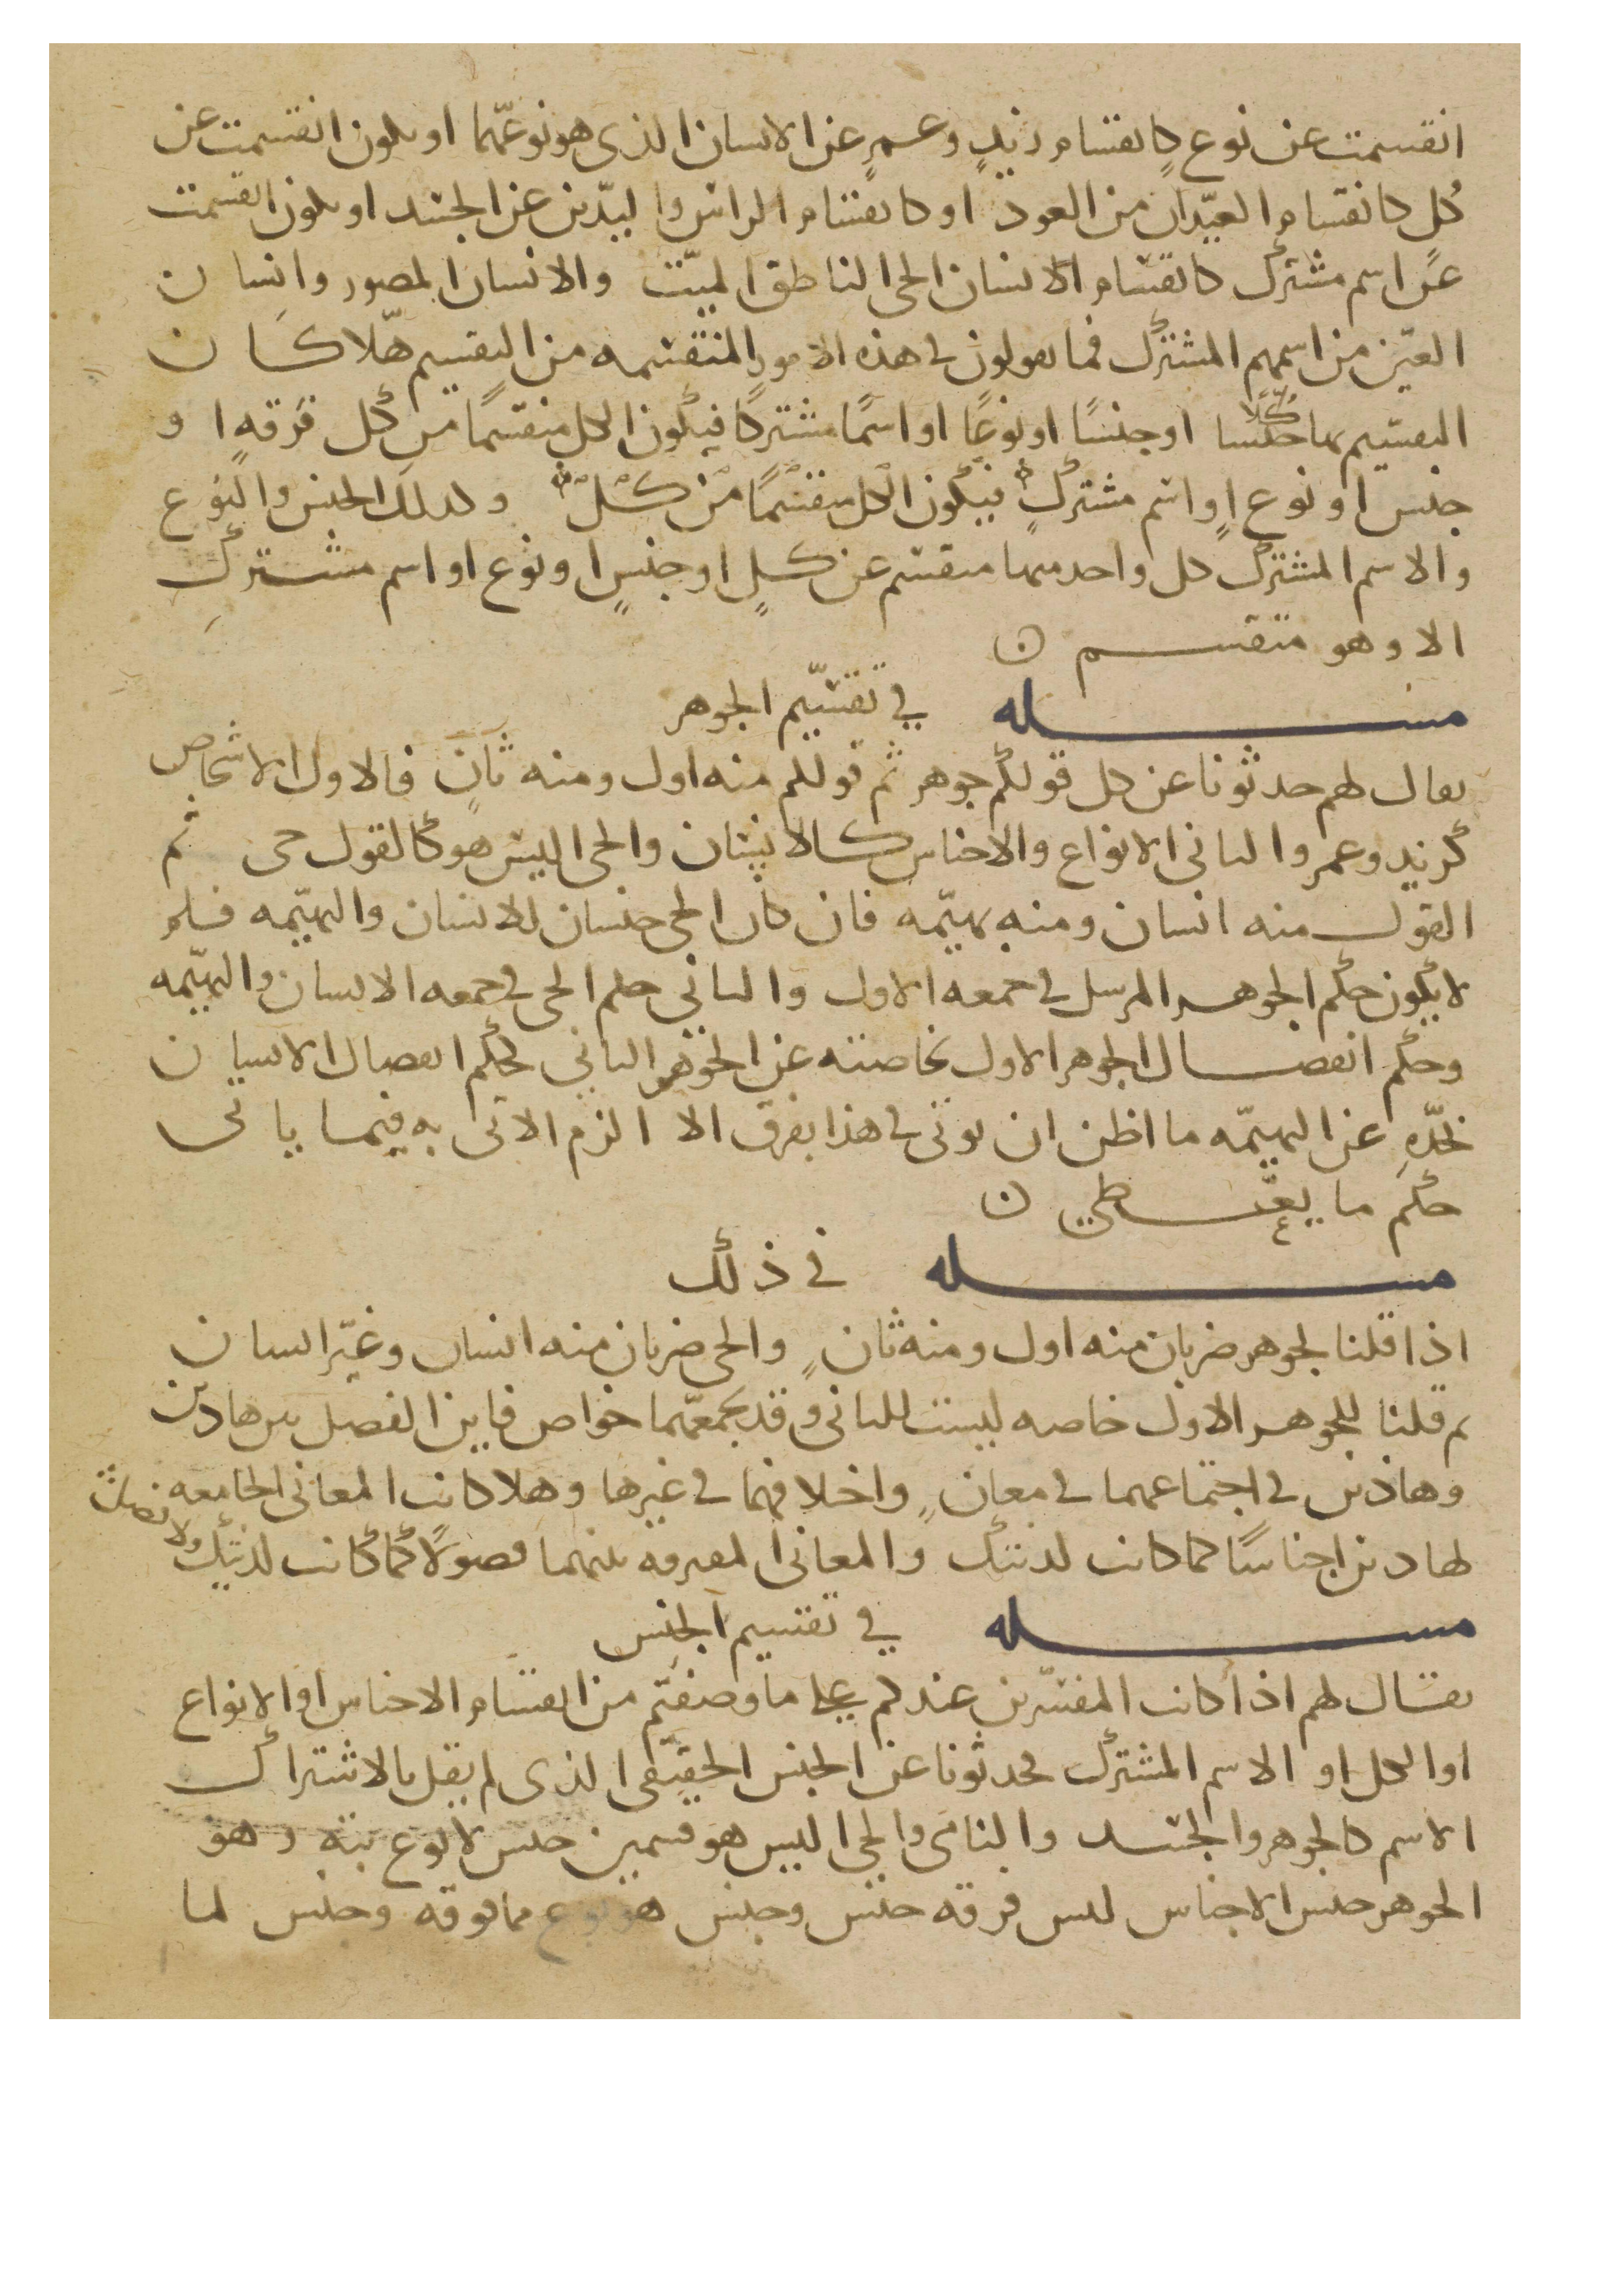 انقسمت عن نوع كانقسام زيدٍ وعمرٍ عن الانسان الذى هو نوعهما او يكون انقسمت عن
كُلٍ كانقسام العيدان من العود او كانقسام الراس واليدين عن الجسد او يكون انقسمت
عن اسم مشترك كانقسام الانسان الحى الناطق الميت والانسان المصور وانسان
العين من اسمهم المشترك فما يقولون فى هذه الامور المنقسمه من التقسيم هلا كان
التقسيم بها كُلًا او جنسًا او نوعًا او اسمًا مشتركًا فيكون الكل منقسمًا من كل فرقه او
جنس او نوع او اسم مشتركٍ فيكون الكل منقسمًا من كل وكدلك الجنس والنوع
والاسم المشترك كل واحد منها منقسم عن كلٍ او جنسٍ او نوع او اسم مشتركٍ
الا وهو منقسم ن
مسله فى تقسيم الجوهر
يقال لهم حدثونا عن كل قولكم جوهر ثم قولكم منه اول ومنه ثانٍ فالاول الاشخاص
كزيد وعمر والثانى الانواع والاجناس كالانسان والحى اليس هو كالقول حى ثم
القول منه انسان ومنه بهيمه فان كان الحى جنسان للانسان والبهيمه فلم
لا يكون حكم الجوهر المرسل فى جمعه الاول والثانى حكم الحى فى جمعه الانسان والبهيمه
وحكم انفصال الجوهر الاول بخاصته عن الجوهر الثانى كحكم انفصال الانسان
بحدّهِ عن البهيمه ما اظن ان يوتى فى هذا بفرق الا الزم الاتى به فيما ياتى
حكم ما يعطى ن
مسله فى ذلك
اذا قلنا لجوهر ضربان منه اول ومنه ثانٍ والحى ضربان منه انسان وغير انسان
ثم قلنا للجوهر الاول خاصه ليست للثانى وقد يجمعهما خواص فاين الفصل بين هادين
وهاذين فى اجتماعهما فى معانٍ واختلافهما فى غيرها وهلا كانت المعانى الجامعه
لهادين اجناسًا كما كانت لدينك والمعانى المفرقه بينهما فصولًا كما كانت لدينك ولا فصلت
مسله فى تقسيم الجنس
يقال لهم اذا كانت المفسرين عندكم على ما وصفتم من انقسام الاجناس او الانواع
او الكل او الاسم المشترك فحدثونا عن الجنس الحقيقى الذى لم يقل بالاشتراك
الاسم كالجوهر والجسد والنامى والحى اليس هو قسمين جنس لا نوع بته وهو
الجوهر جنس الاجناس ليس فوقه جنس وجنس هو نوع مما فوقه وجنس لما